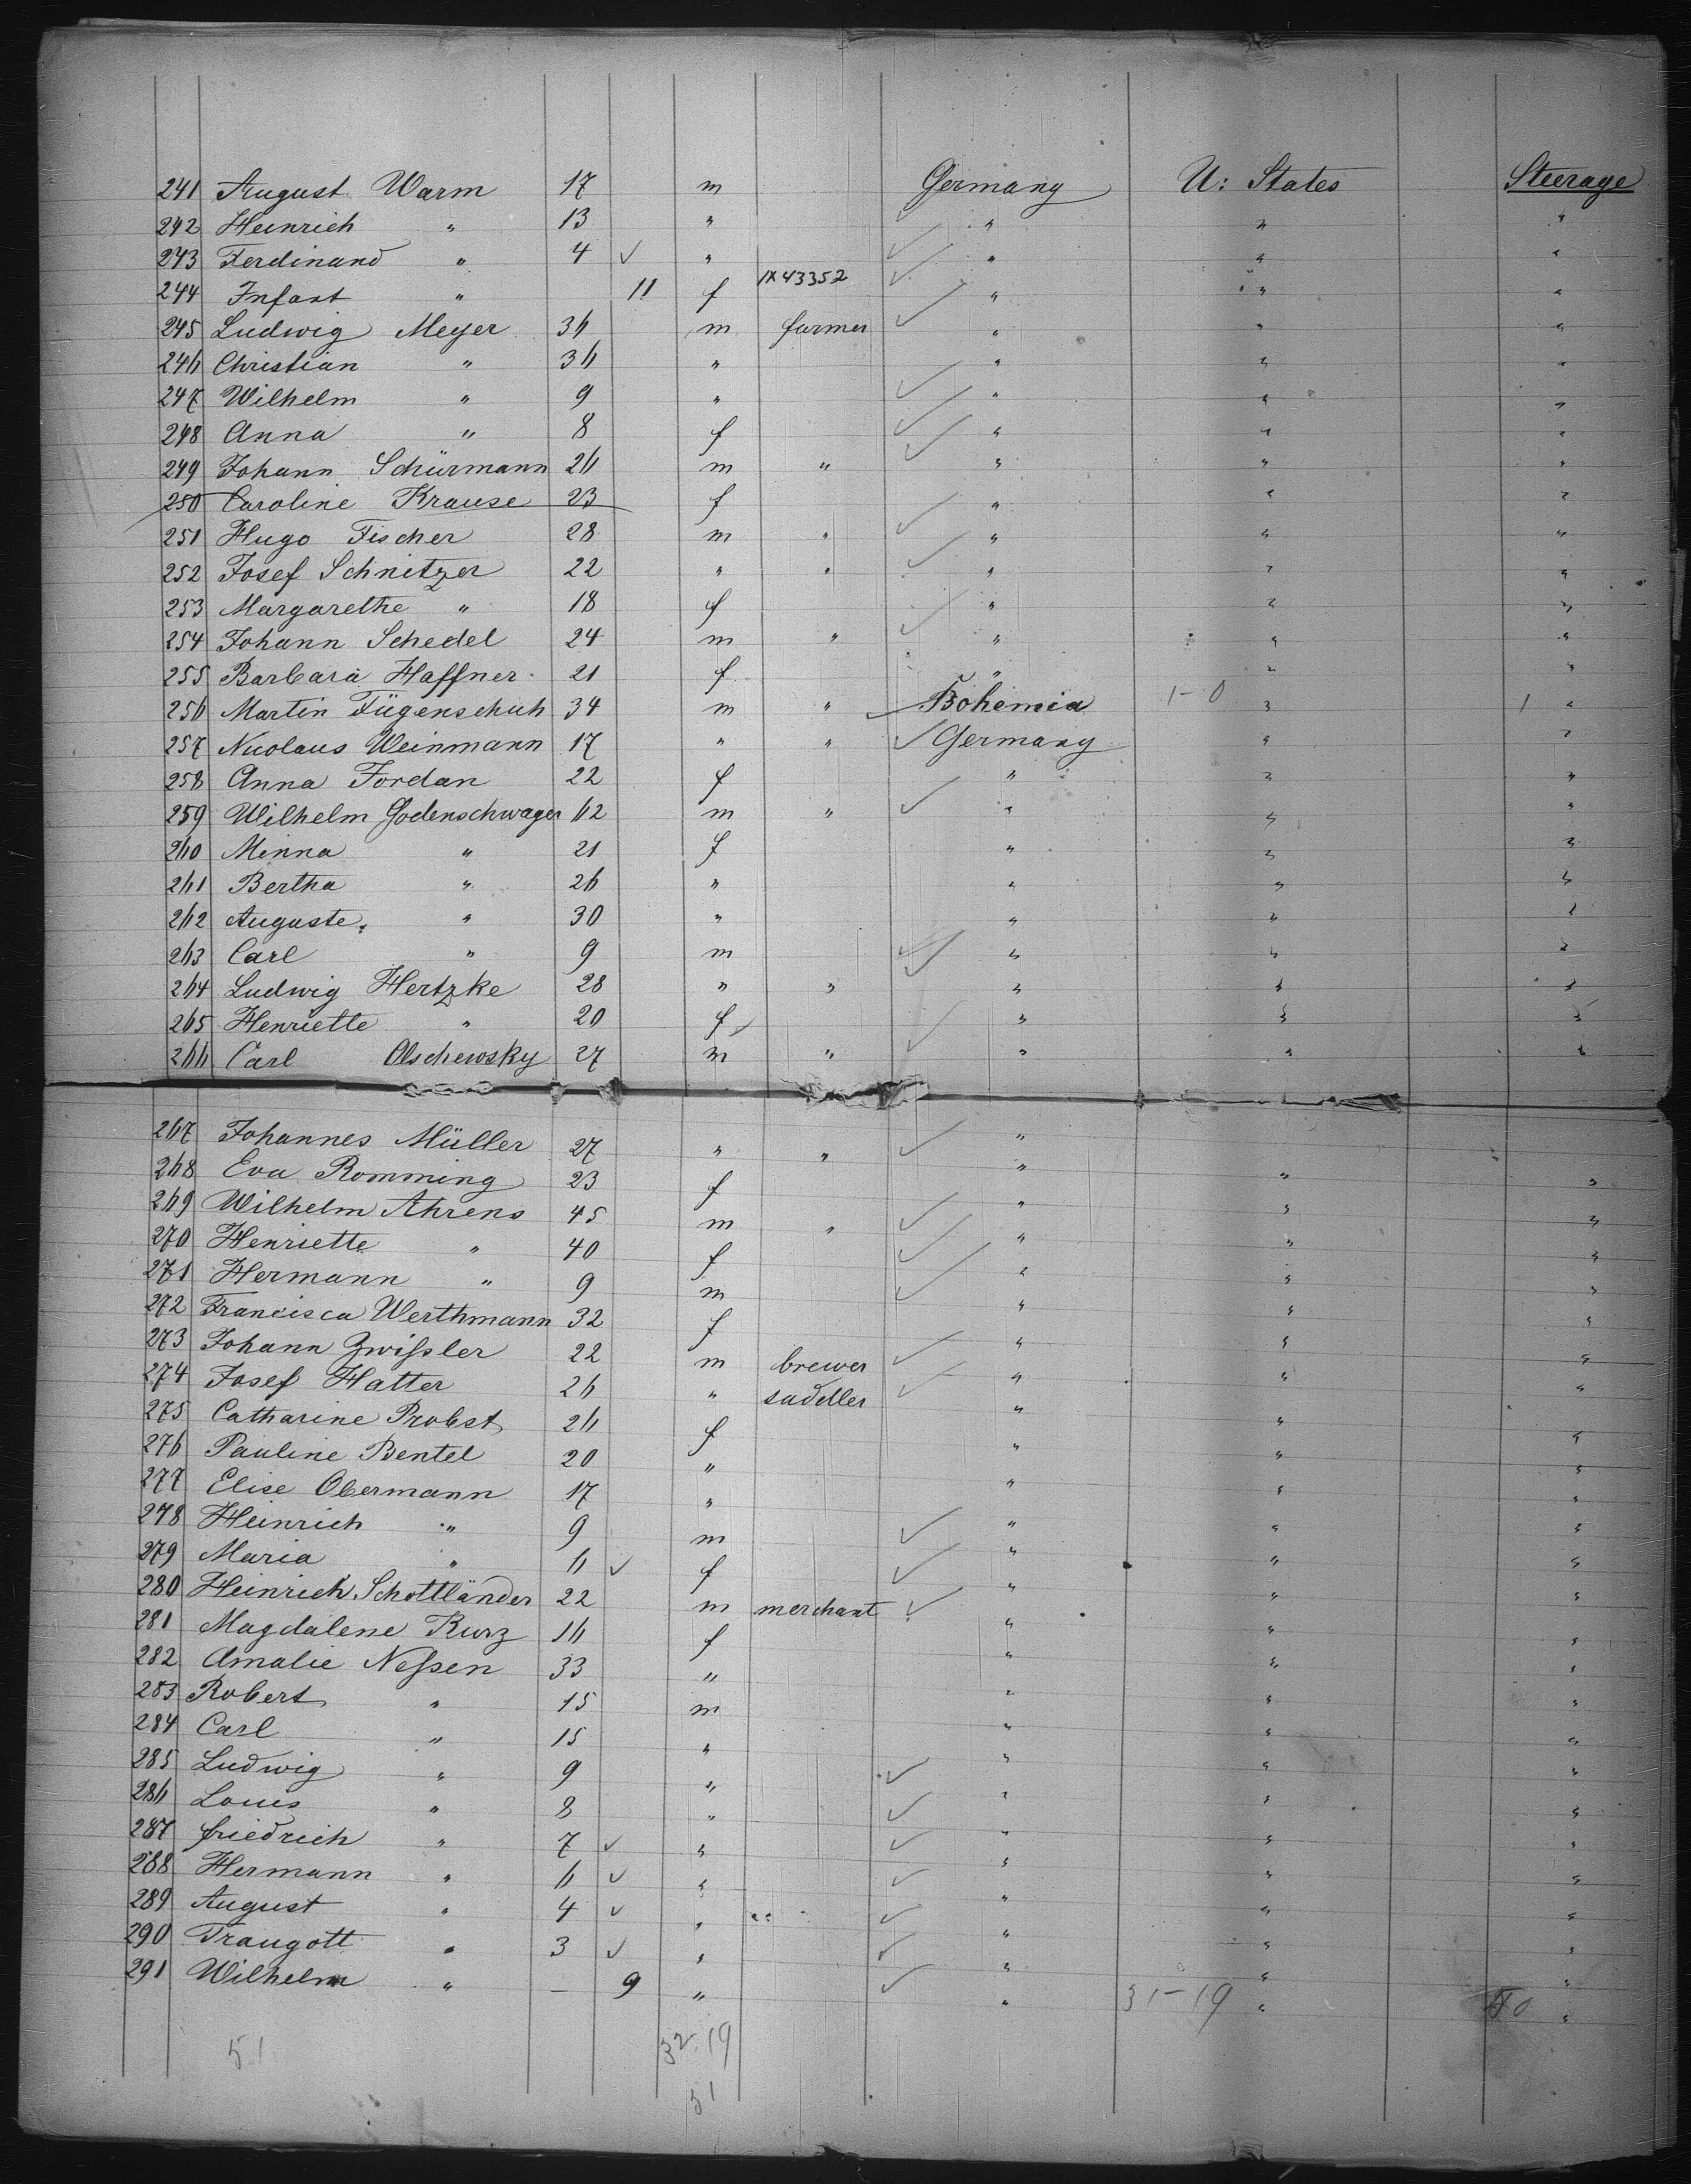 241 August Warm 17 m Germany U: States Steerage
242 Heinrich " 13 " " " "
243 Ferdinand " 4 ✓ " " " "
1X43352
244 Infant " 11 f " " "
245 Ludwig Meyer 36 m farmer " " "
246 Christian " 36 " " " "
247 Wilhelm " 9 " " " "
248 Anna " 8 f " " "
249 Johann Schürmann 26 m " " " "
250 Caroline Krause 23 f " " "
251 Hugo Fischer 28 m " " " "
252 Josef Schnitzer 22 " " " " "
253 Margarethe " 18 f " " "
254 Johann Schedel 24 m " " " "
255 Barbara Haffner 21 f " " "
256 Martin Fügenschuh 34 m " Bohemia 1-0 " 1 "
257 Nicolaus Weinmann 17 " " Germany " "
258 Anna Jordan 22 f " " "
259 Wilhelm Godenschwager 62 m " " " "
260 Minna " 21 f " " "
261 Bertha " 26 " " " "
262 Auguste " 30 " " " "
263 Carl " 9 m " " "
264 Ludwig Hertzke 28 " " " " "
265 Henriette " 20 f " " "
266 Carl Olschewsky 27 m " " " "
267 Johannes Müller 27 " " "
268 Eva Romming 23 f " " "
269 Wilhelm Ahrens 45 m " " " "
270 Henriette " 40 f " " "
271 Hermann " 9 m " " "
272 Francisca Werthmann 32 f " " "
273 Johann Zwißler 22 m brewer " " "
274 Josef Hatter 26 " sadeller " " "
275 Catharine Probst 26 f " " "
276 Pauline Bentel 20 " " " "
277 Elise Obermann 17 " " " "
278 Heinrich " 9 m " " "
279 Maria " 6 ✓ f " " "
280 Heinrich Schottländer 22 m merchant " " "
281 Magdalene Kurz 16 f " " "
282 Amalie Neßen 33 " " " "
283 Robert " 15 m " " "
284 Carl " 15 " " " "
285 Ludwig " 9 " " " "
286 Louis " 8 " " " "
287 Friedrich " 7 ✓ " " " "
288 Hermann " 6 ✓ " " " "
289 August " 4 ✓ " " " "
290 Traugott " 3 ✓ " " " "
291 Wilhelm " — 9 " " 31-19 " "
51 32-19
51